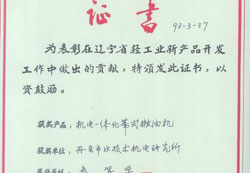 证书
93-3-37
为表彰在辽宁省轻工业新产品开发
工作中做出的贡献,特颁发此证书,以
资鼓励。
获奖产品:机电一体化蒂式燃油机
获奖单位:丹东市水技术机电研究所